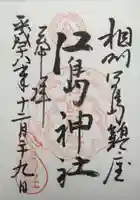 相州江の島鎮座
江島神社
奉拝
平成八年十二月廿九日